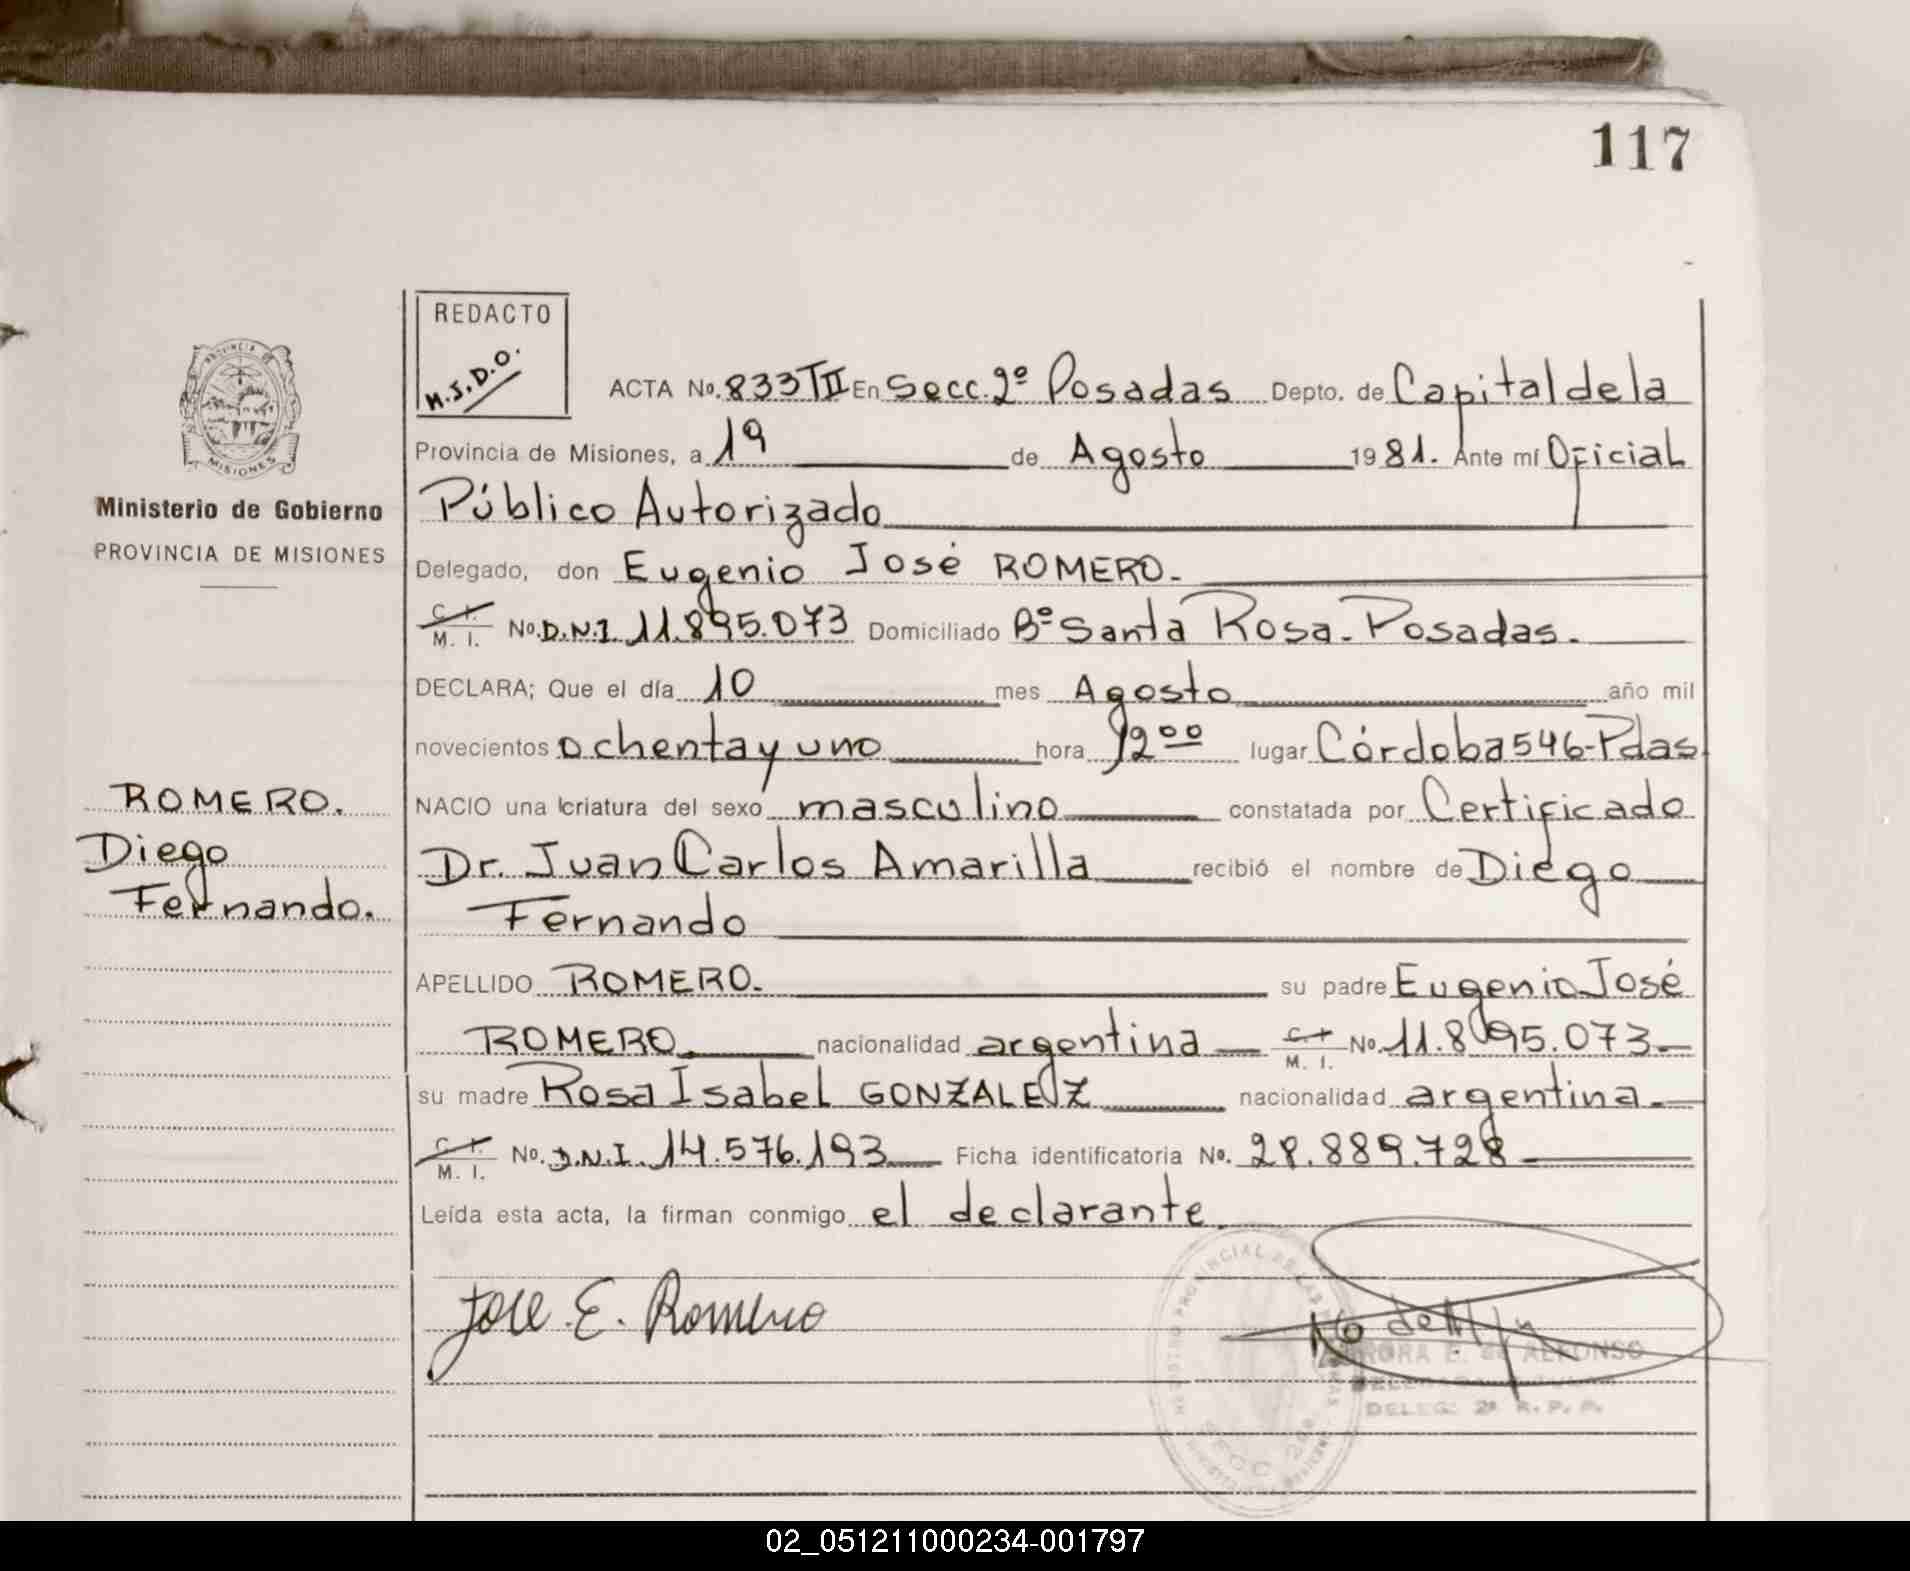 117
REDACTO
M.J.D.O.
ACTA No. 833 TII En Secc. 2º Posadas Depto. de Capital de la
Provincia de Misiones, a 19 de Agosto 1981. Ante mí Oficial
Público Autorizado
Delegado, don Eugenio José ROMERO.
C. I. M. I. No. D.N.I 11.895.073 Domiciliado Bº Santa Rosa - Posadas.
DECLARA; Que el día 10 mes Agosto año mil
novecientos ochenta y uno hora 12 00 lugar Córdoba 546-Pdas
NACIO una criatura del sexo masculino constatada por Certificado
Dr. Juan Carlos Amarilla recibió el nombre de Diego
Fernando
APELLIDO ROMERO. su padre Eugenio José
ROMERO nacionalidad argentina C. I. M. I. No. 11.895.073
su madre Rosa Isabel GONZALEZ nacionalidad argentina
C. I. M. I. No. D.N.I. 14.576.193 Ficha identificatoria No. 28.889.728
Leída esta acta, la firman conmigo el declarante.
PROVINCIA DE
MISIONES
Ministerio de Gobierno
PROVINCIA DE MISIONES
ROMERO.
Diego
Fernando.
Jose. E. Romero
REGISTRO PROVINCIAL DE LAS PERSONAS
SECC. 2da
E. de ALFONSO
DELEG. 2ª R. P. P.
02_051211000234-001797